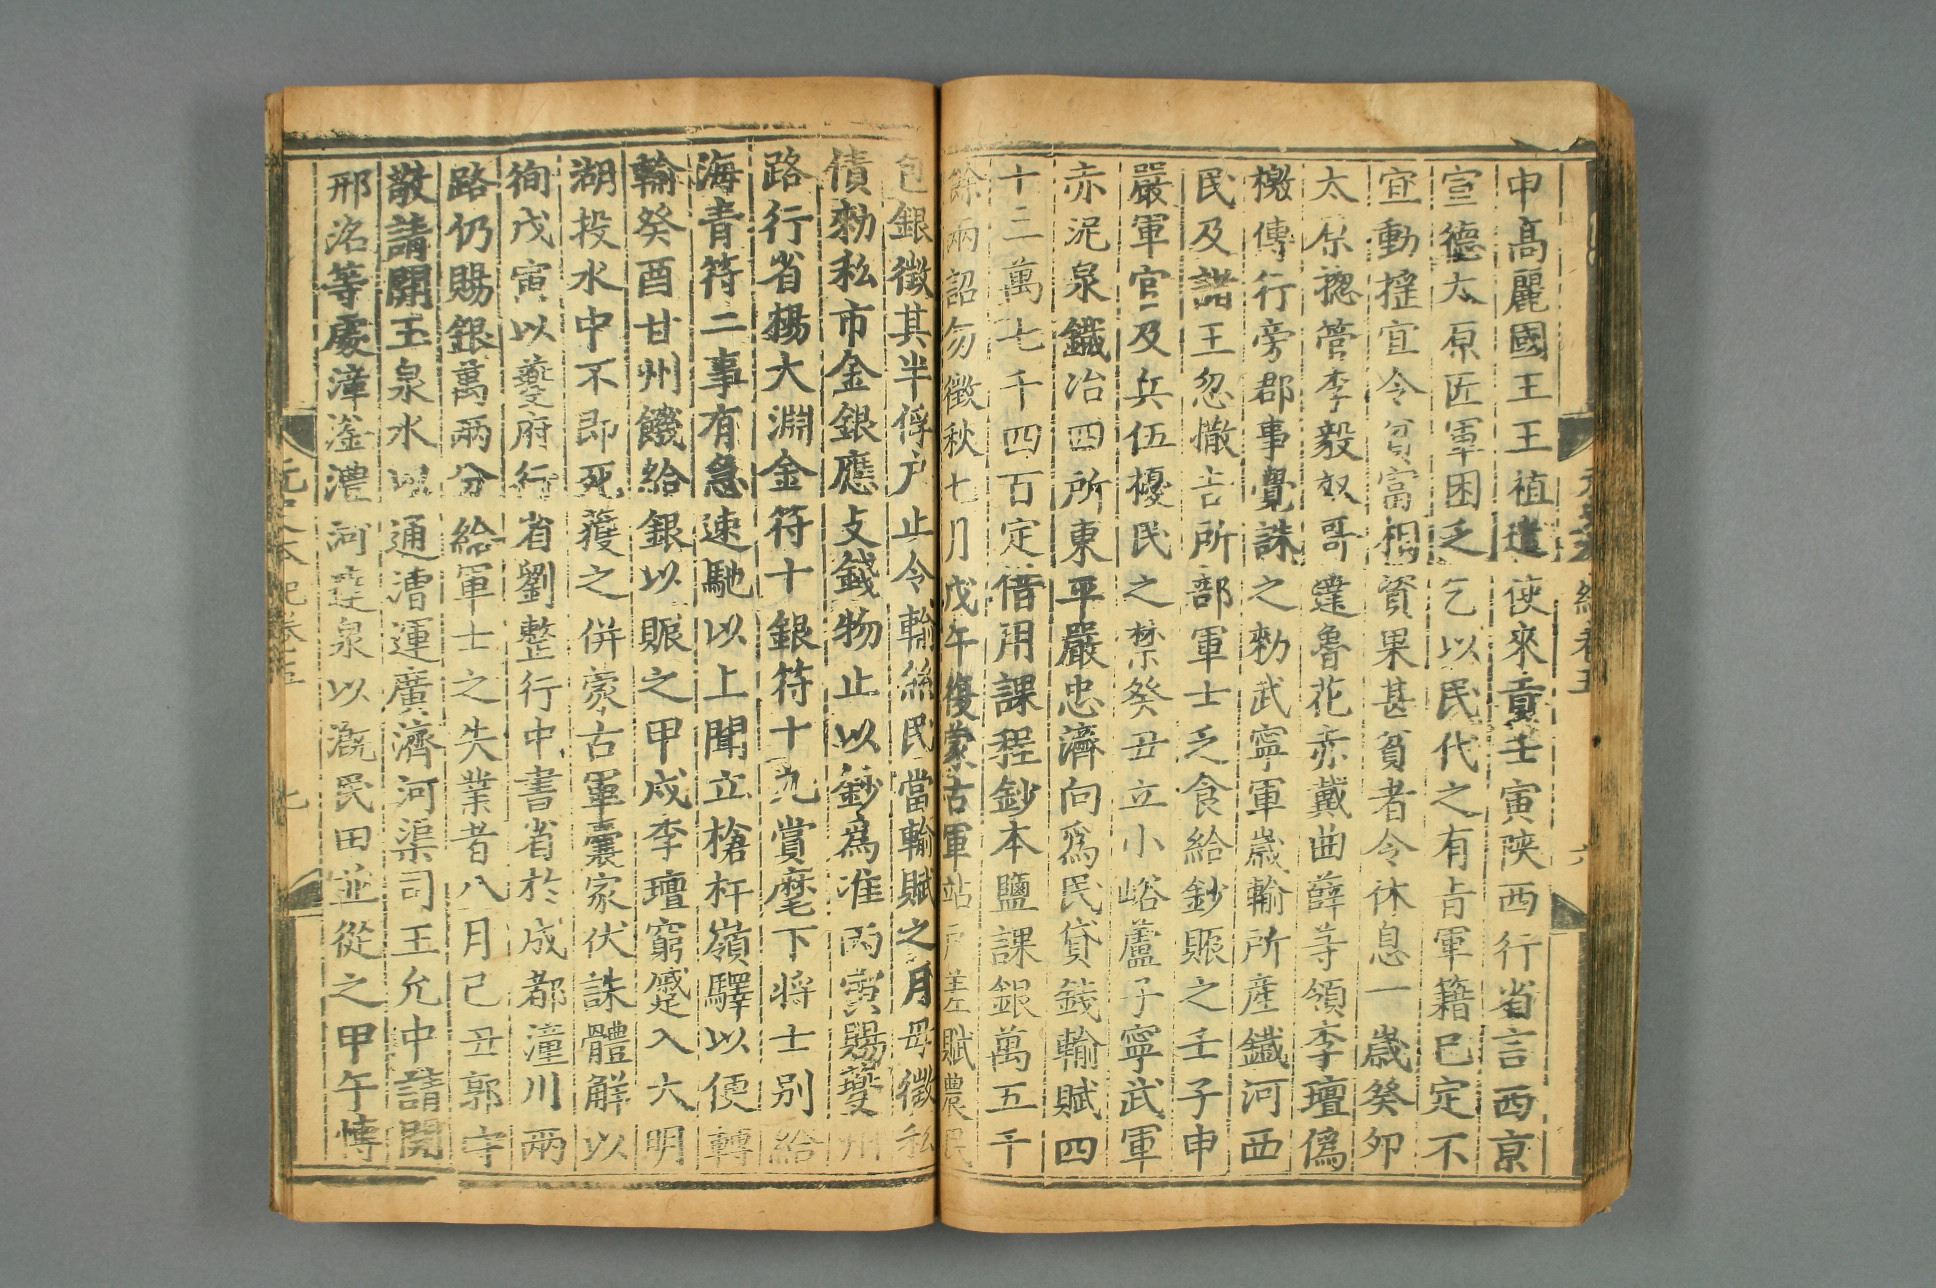 申高麗國王王禃遣使來貢壬寅陝西行省言西京
宣德太原匠軍困乏乞以民代之有旨軍籍已定不
宜動搖宜令貧富相資果甚貧者令休息一歲癸卯
太原緫管李毅奴哥達魯花赤戴曲薛等領李璮僞
檄傳行旁郡事覺誅之勑武寧軍歲輸所產鐵河西
民及諸王忽撒吉所部軍士乏食給鈔賑之壬子申
嚴軍官及兵伍擾民之禁癸丑立小峪蘆子寧武軍
赤泥泉鐵冶四所東平嚴忠濟向爲民貸錢輸賦四
十三萬七千四百定借用課程鈔本鹽課銀萬五千
餘兩詔勿徵秋七月戊午復蒙古軍站戶差賦農民
包銀徵其半俘户止令輸絲民當輸賦之月毋徵私
債勑私市金銀應攴錢物止以鈔爲准丙寅賜夔州
路行省楊大淵金符十銀符十九賞麾下將士別給
海青符二事有急速馳以上聞立槍杆嶺驛以便轉
輸癸酉甘州饑給銀以賑之甲戌李璮窮蹙入大明
湖投水中不即死獲之併蒙古軍囊家伏誅體解以
徇戊寅以夔府行省劉整行中書省於成都潼川兩
路仍賜銀萬兩分給軍士之失業者八月己丑郭守
敬請開玉泉水以通漕運廣濟河渠司王允中請開
邢洺等處漳滏澧河達泉以溉民田並從之甲午博
元史本紀卷五
七